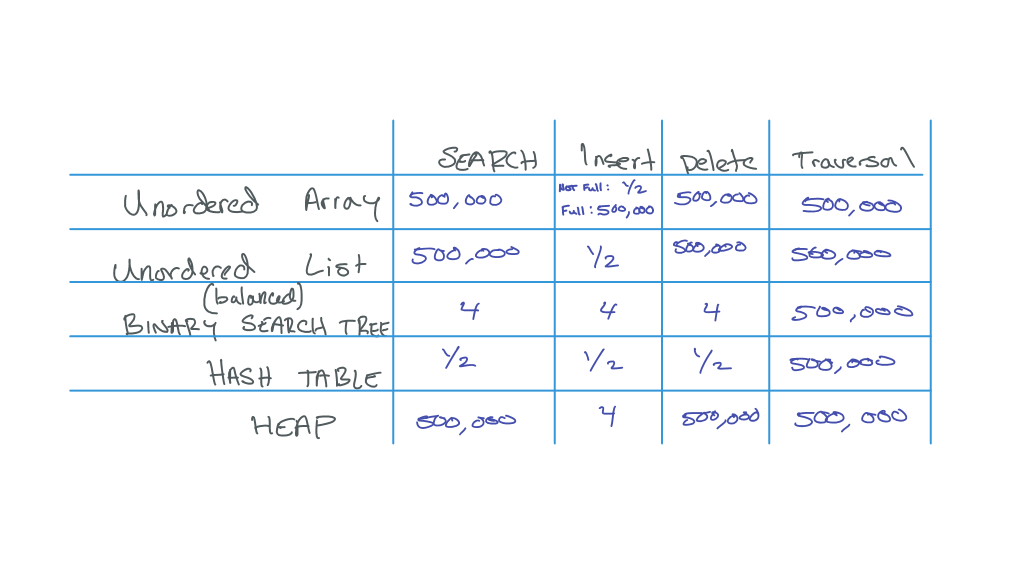 SEARCH Insert Delete Traversal
Unordered Array 500,000 Not Full: 1/2 500,000 500,000
Full: 500,000
Unordered List 500,000 1/2 500,000 500,000
(balanced)
BINARY SEARCH TREE 4 4 4 500,000
HASH TABLE 1/2 1/2 1/2 500,000
HEAP 500,000 4 500,000 500,000